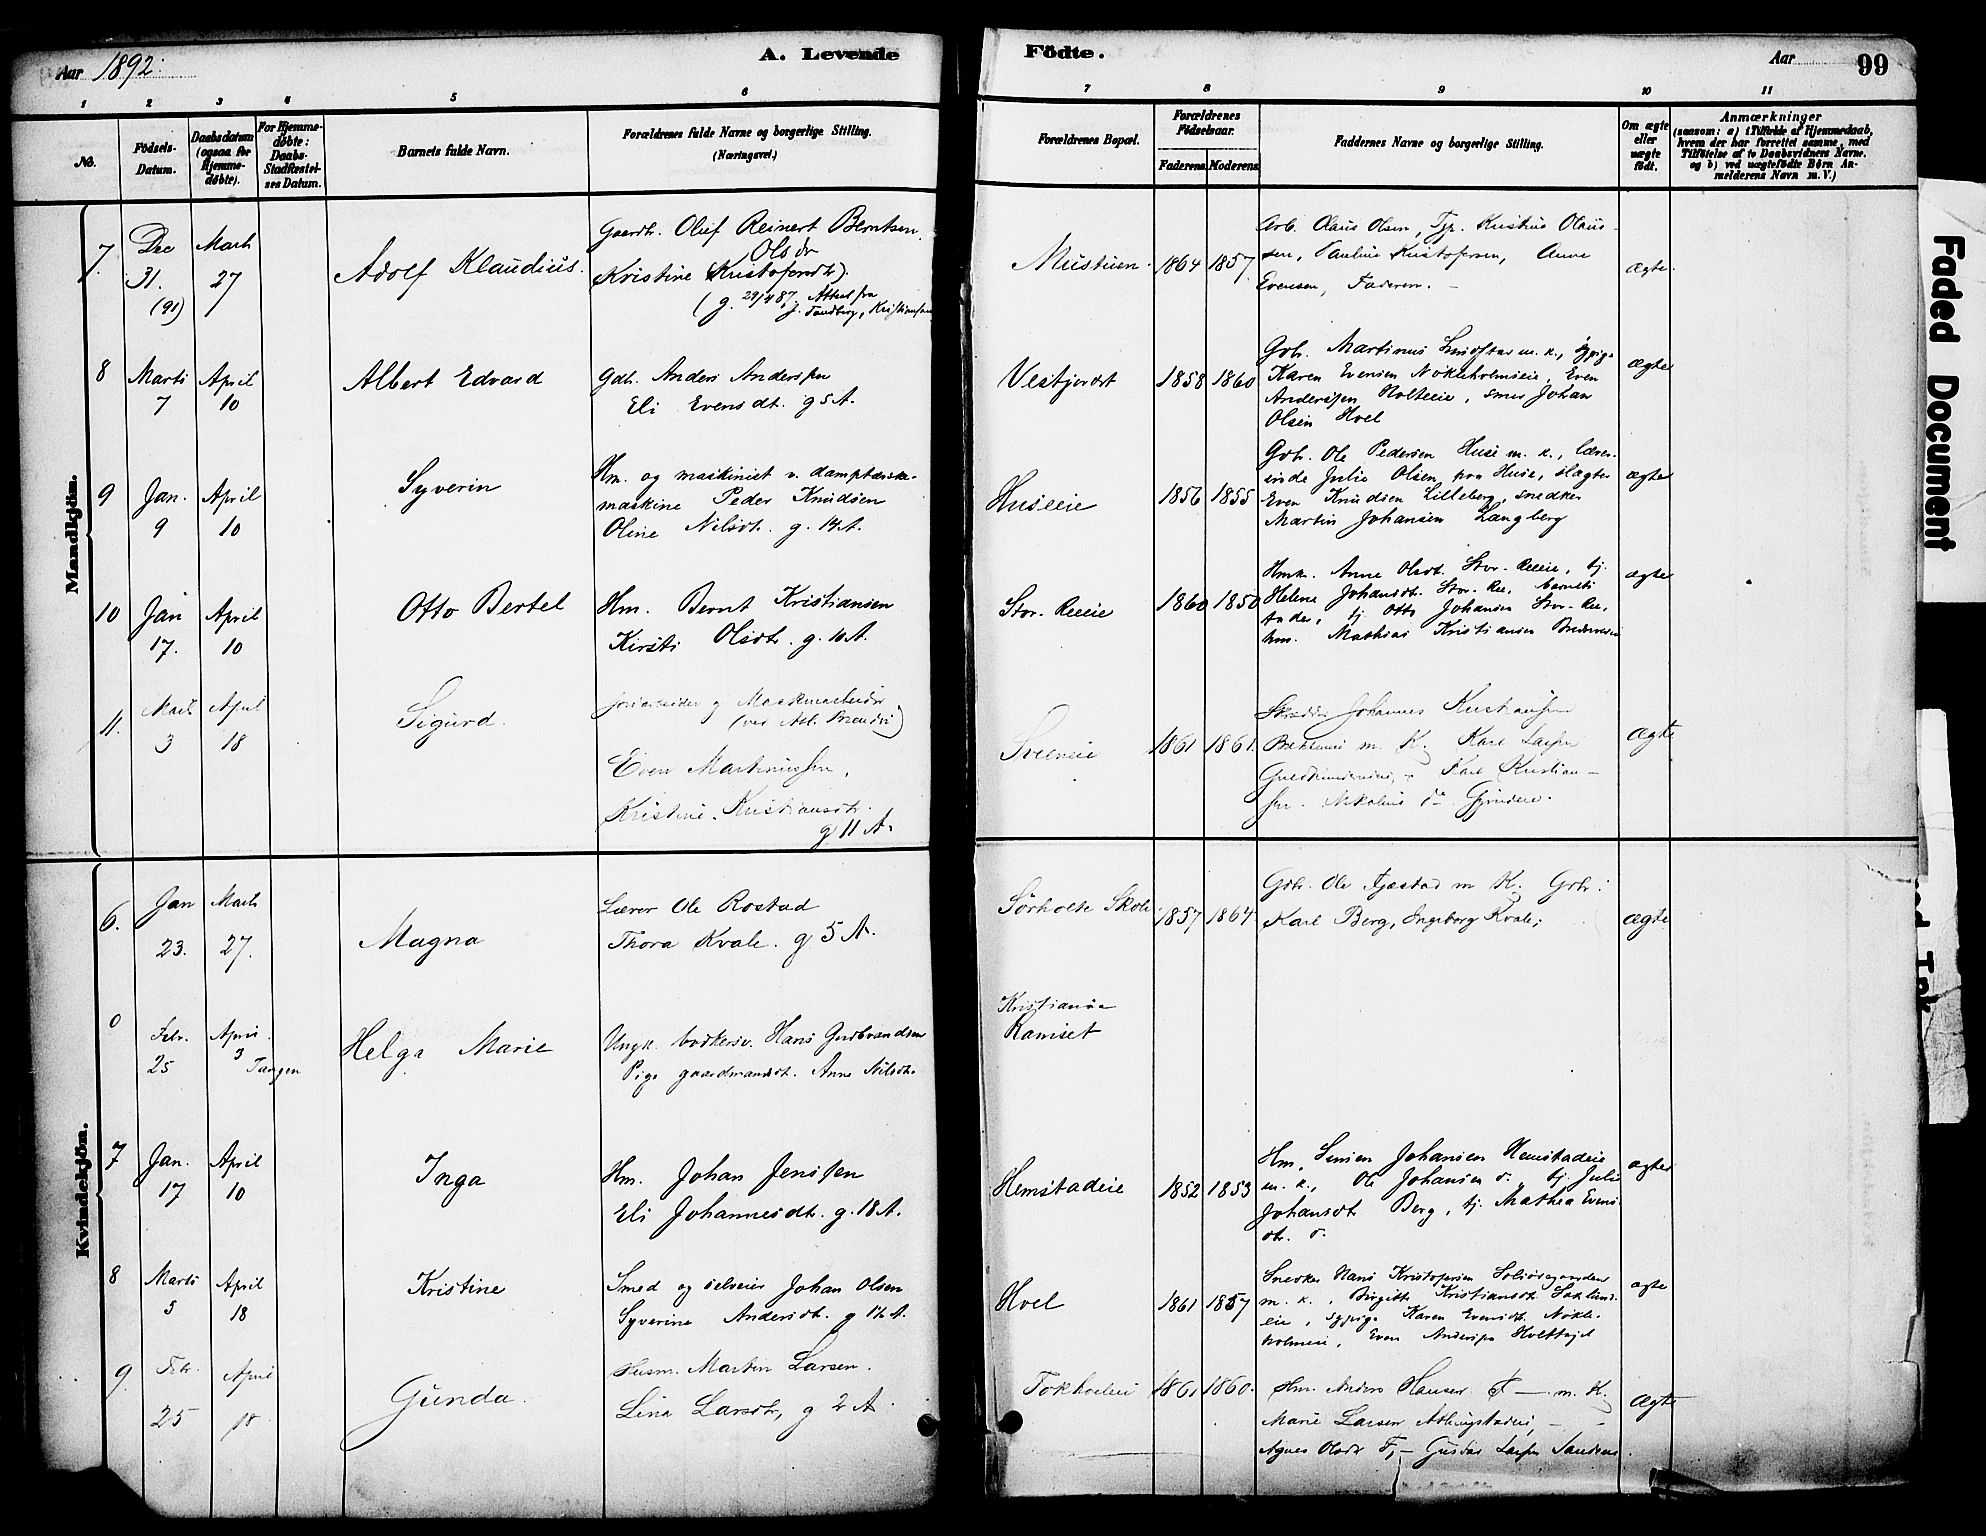 Aar 1892.
A. Levende
Födte.
Aar
99
1 2 3 4 5 6 7 8 9 10 11
No.
Födsels-Datum.
Daabsdatum (ogsaa for Hjemme-døbte).
For Hjemme-døbte: Daabs-Stadfæstel-ses Datum.
Barnets fulde Navn.
Forældrenes fulde Navne og borgerlige Stilling. (Næringsvei.)
Forældrenes Bopæl.
Forældrenes Födselsaar.
Faderens Moderens
Faddernes Navne og borgerlige Stilling.
Om ægte eller uægte födt.
Anmærkninger
(saasom: a) i Tilfælde af Hjemmedaab,
hvem der har forrettet samme, med
Tilföielse af to Daabsvidners Navne.
og b) ved uægtefödte Börn An-
melderens Navn m. V.)
Mandkjön.
7. Dec 31. (91) Marts 27
Adolf Klaudius.
Gaardbr. Oluf Reinert Berntsen.
Olsdr
Kristine (Kristofersdtr).
(g. 29/4 87. Attest fra
J. Tandberg, Kristiansand
Mustuen. 1864 1857.
Arb. Olaus Olsen, Tjp. Kristine Olaus-
sen, Pauline Kristofersen, Anne
Evensen, Faderen. -
ægte
8 Marts 7 April 10
Albert Edvard
Gdb. Anders Andersen
Eli Evensdt. g 5 A.
Vestjordet 1858 1860
Gbr. Martinus m. k., sypige
Karen Evensen Nökleholmseie, Even
Andersen Holteeie, smed Johan
Olsen Hoel
ægte
9 Jan. 9 April 10
Syverin
Hm. og maskinist v. damptærske-
maskine Peder Knudsen
Oline Nilsdt. g. 14 A.
Huseeie 1856 1855
Gbr. Ole Pedersen Huse m. k., lærer-
inde Julie Olsen paa Huse, slagter
Even Knudsen Lilleberg, snedker
Martin Johansen Langberg
ægte
10 Jan 17. April 10
Otto Bertel
Hm. Bernt Kristiansen
Kirsti Olsdtr. g. 10 A.
Stor-Reeie 1860 1850
Hmk. Anne Olsdt. Stor-Reeie, tj.
Helene Johansdt. Stor-Ree, barnets
fader, tj. Otto Johansen Stor-Ree,
hm. Mathias Kristiansen
ægte
11. Marts 3 April 18
Sigurd.
Jordarbeider og Maskinarbeider
Even Martiniussen,
Kristine Kristiansdtr.
g 11 A.
Sveneie 1861 1861.
Skrædder Johannes Kristiansen
m. K. Karl Larsen
Karl Kristian-
sen. Nikoline
ægte
Kvindekjön.
6. Jan 23. Marts 27.
Magna
Lærer Ole Rostad
Thora Kvale. g 5 A.
Sörholte Skole 1857 1864
Gbr. Ole Fjæstad m K. Gbr:
Karl Berg, Ingeborg Kvale;
ægte
0 Febr. 25 April. 3 Tangen
Helga Marie
Ungk. bødkersv. Hans Gudbrandsen
Pige gaardmandsdt. Anne Nilsdtr
Kristiania
Ramset
7 Jan. 17 April 10
Inga
Hm. Johan Jenssen
Eli Johannesdt. g. 18 A.
Hemstadeie 1852 1853
Hm. Simen Johansen Hemstadeie
m. k., Ole Johansen s., tj. Julie
Johansdt Berg, tj. Mathea Evens-
dtr. s.
ægte
8 Marts 3 April 18
Kristine
Smed og selveier Johan Olsen
Syverine Andersdt. g 12 A.
Hoel 1861 1857
Snedker Hans Kristofersen
m. k., Birgitte Kristiansdt.
eie, sypige Karen Evensdt. Nökle-
holmeie, Even Andersen
ægte
9. Febr. 25 April 18
Gunda.
Husm. Martin Larsen.
Lina Larsdtr, g 2 A
Tokholeie 1861 1860.
Hm. Anders Hansen T— m. K.
Marie Larsen
Agnes Olsdtr T, - Gustav Larsen
ægte
Faded Document